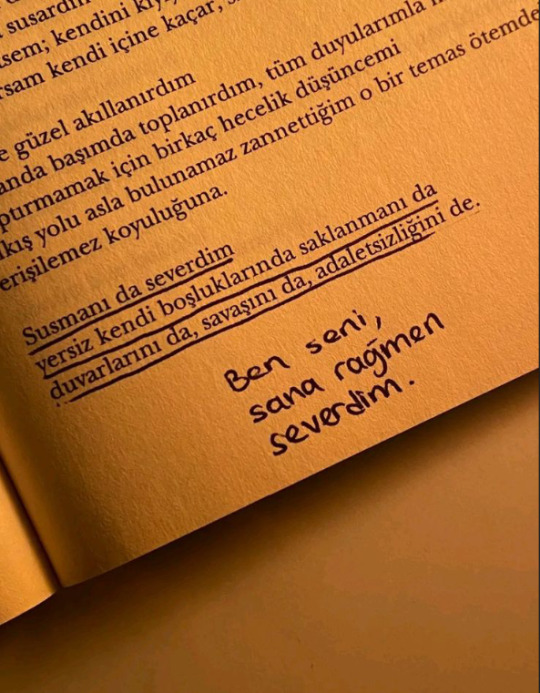 susardım
sem; kendini
rsam kendi içine kaçar,
e güzel akıllanırdım
anda başımda toplanırdım, tüm duyularımla
purmamak için birkaç hecelik düşüncemi
kış yolu asla bulunamaz zannettiğim o bir temas ötemde
erişilemez koyuluğuna.
Susmanı da severdim
yersiz kendi boşluklarında saklanmanı da
duvarlarını da, savaşını da, adaletsizliğini de.
Ben seni,
sana rağmen
severdim.